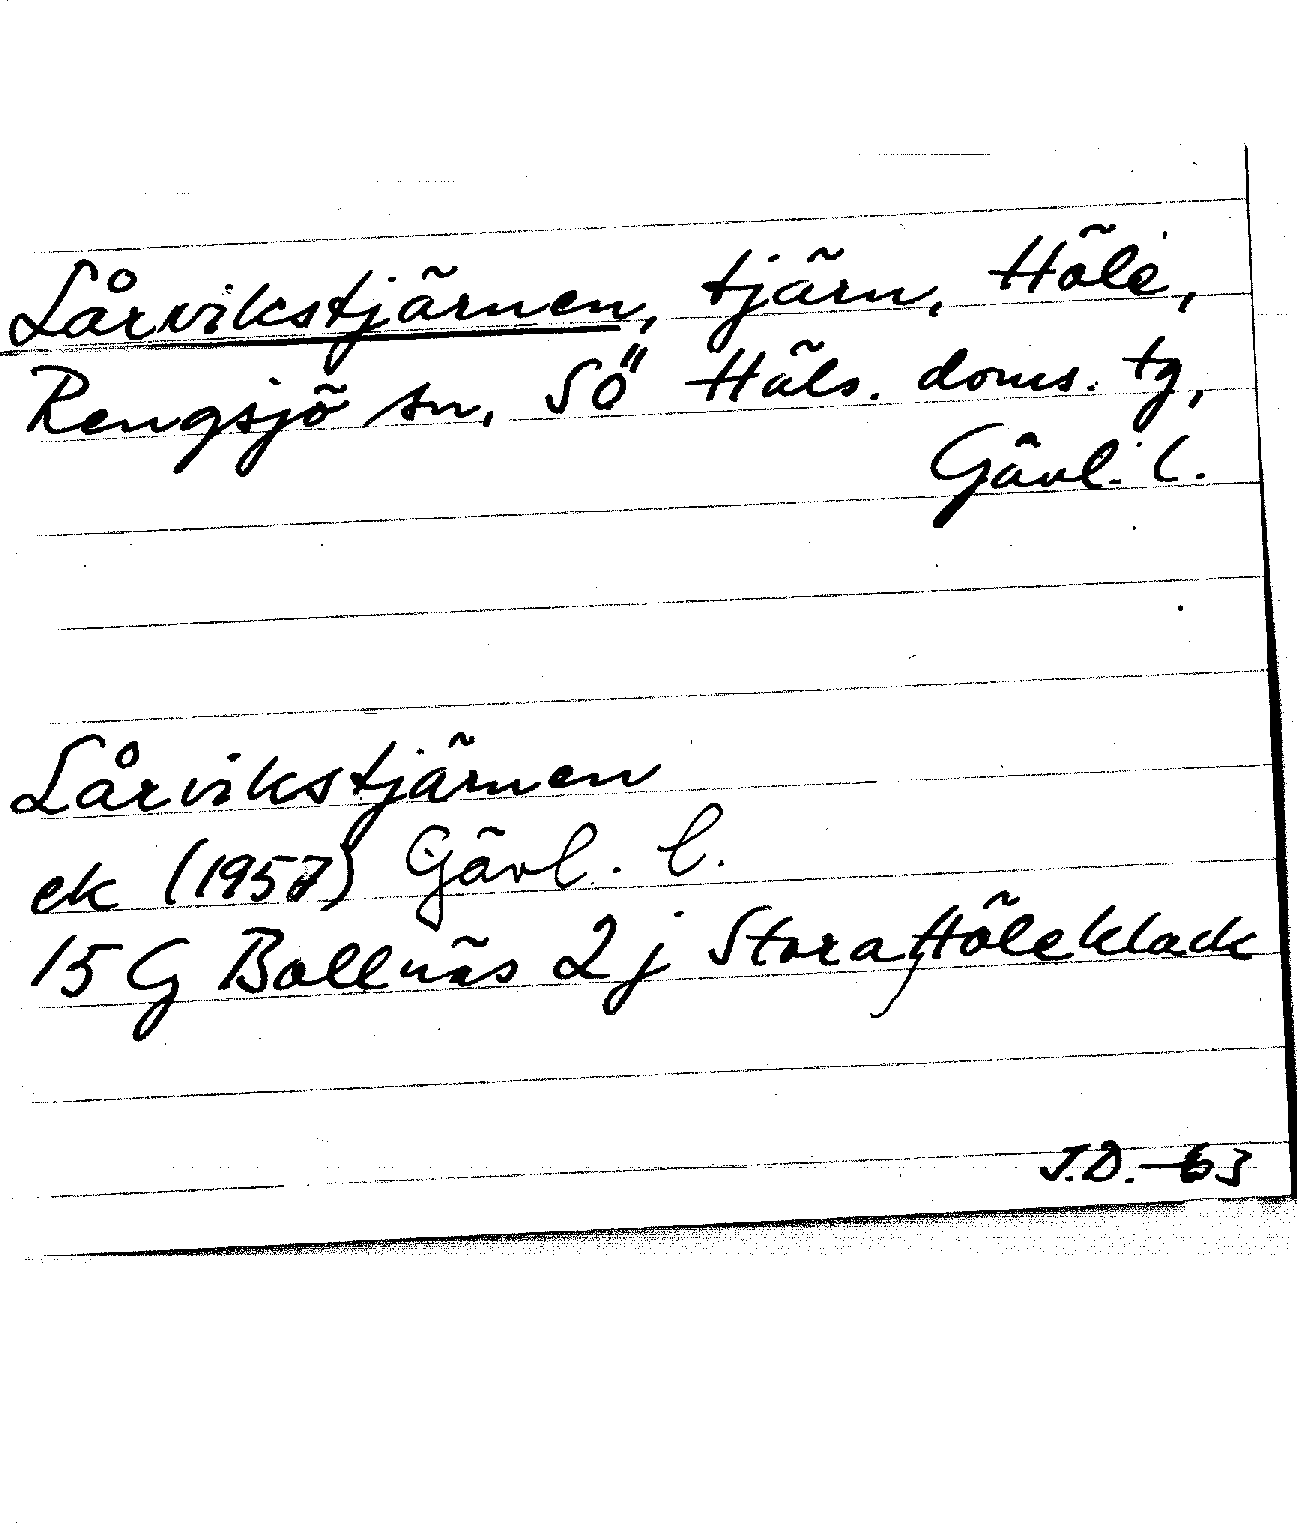 Lårvikstjärnen, tjärn, Höle,
Rengsjö sn, SÖ Häls. doms. tg,
Gävl. l.
Lårvikstjärnen
ek (1957) Gävl. l.
15 G Bollnäs 2 j Stora Höleklack
J.D.-63